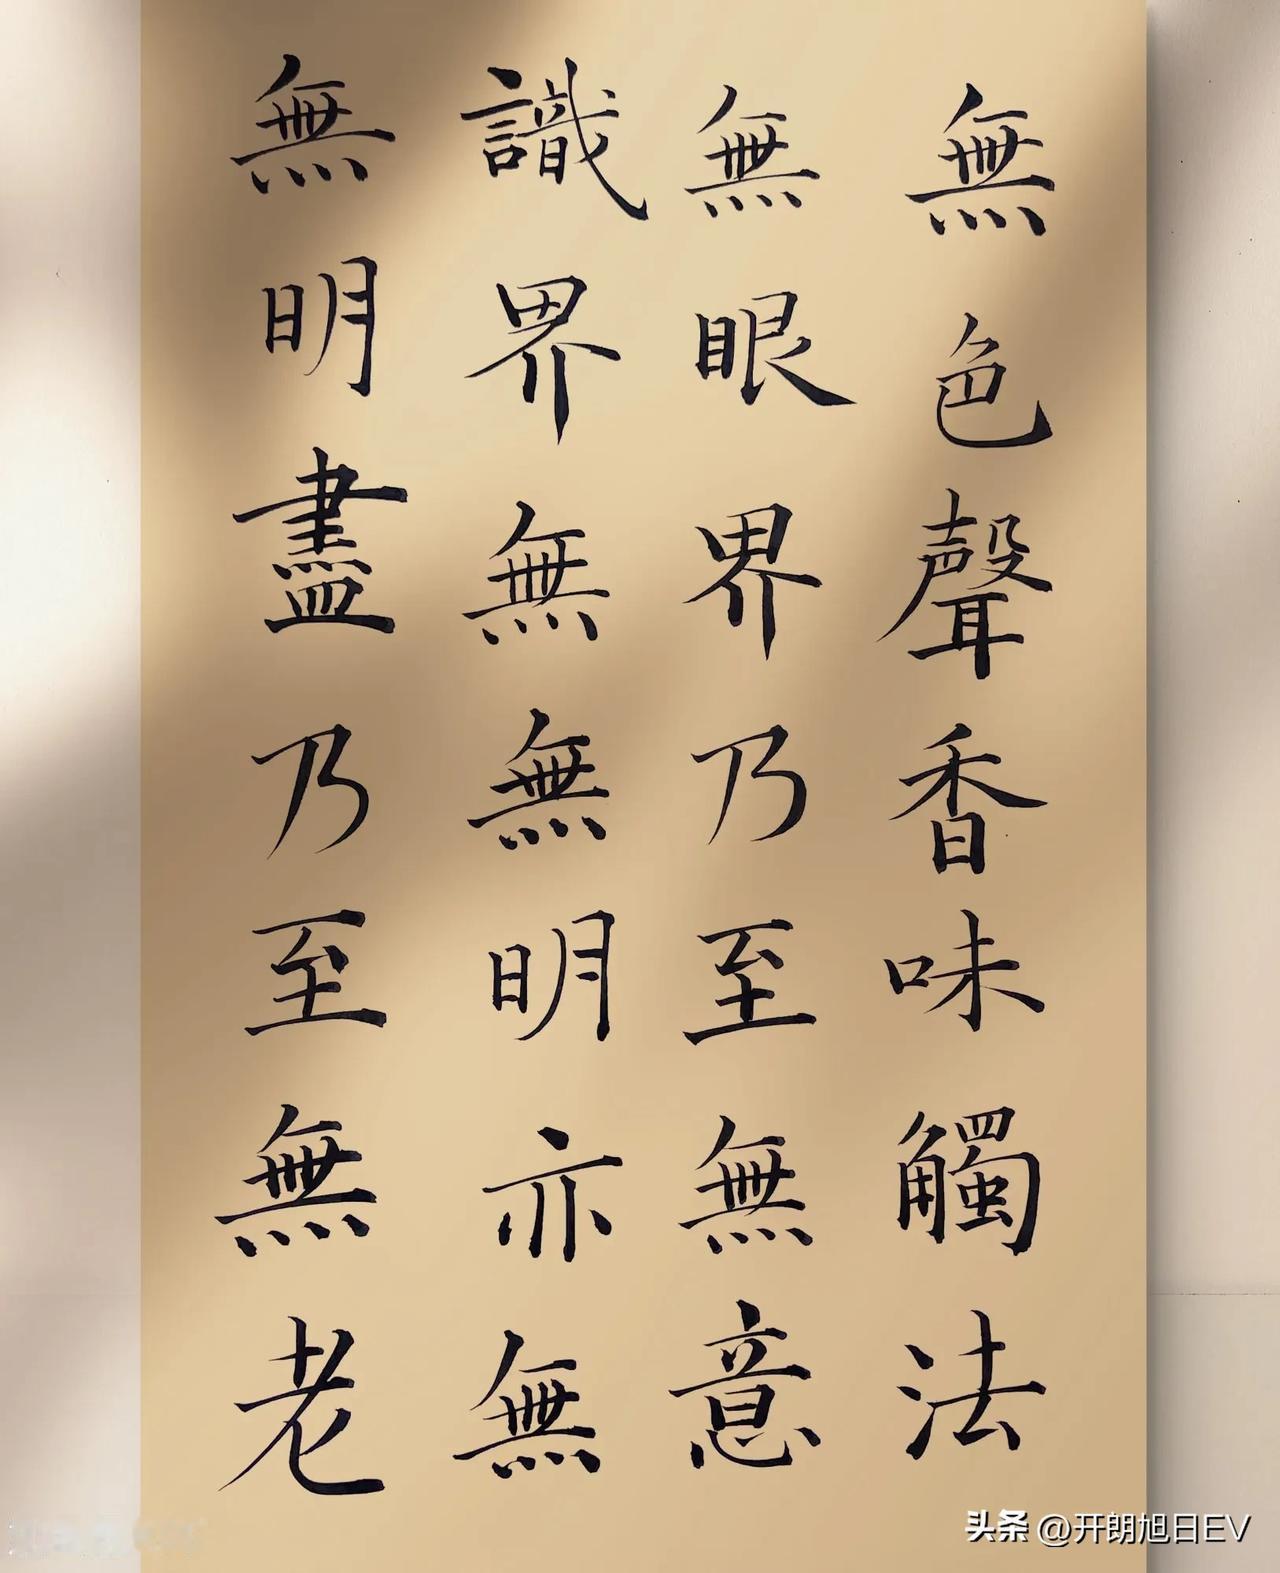 無色聲香味觸法
無眼界乃至無意
識界無無明亦無
無明盡乃至無老
头条 @开朗旭日EV